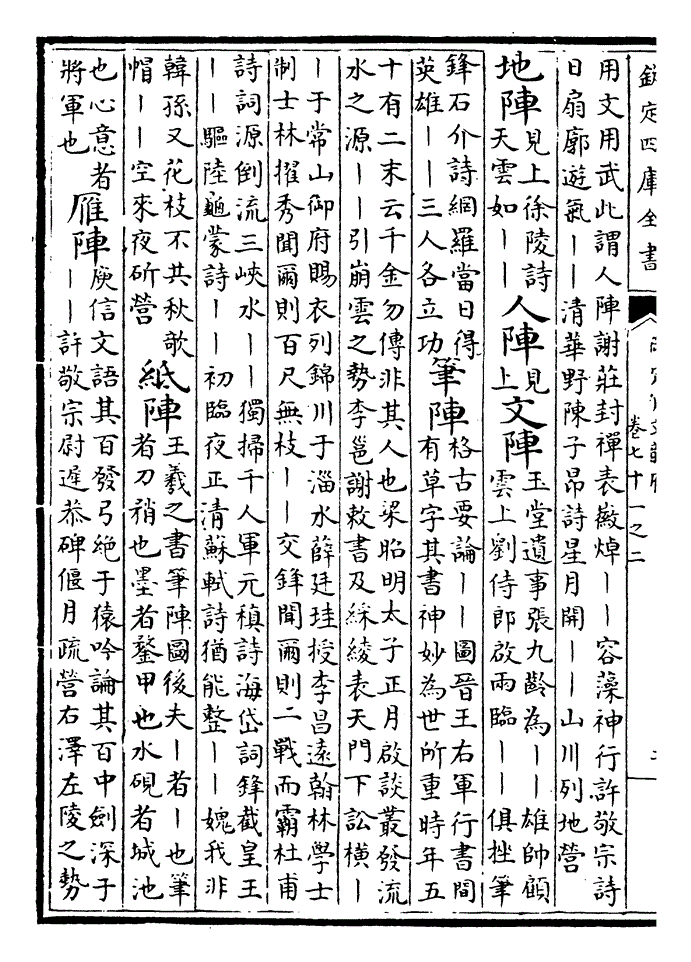 欽定四庫全書
卷七十一之二
用文用武此謂人陣謝莊封禪表徽焯丨丨容藻神行許敬宗詩
日扇廓遊氣丨丨清華野陳子昂詩星月開丨丨山川列地營
地陣見上徐陵詩
天雲如丨丨人陣見
上文陣玉堂遺事張九齡為丨丨雄帥顧
雲上劉侍郎啟雨臨丨丨俱挫筆
鋒石介詩網羅當日得
英雄丨丨三人各立功筆陣格古要論丨丨圖晉王右軍行書間
有草字其書神妙為世所重時年五
十有二末云千金勿傳非其人也梁昭明太子正月啟談叢發流
水之源丨丨引崩雲之勢李邕謝敕書及綵綾表天門下訟橫丨
丨于常山御府賜衣列錦川于淄水薛廷珪授李昌遠翰林學士
制士林擢秀聞爾則百尺無枝丨丨交鋒聞爾則二戰而霸杜甫
詩詞源倒流三峽水丨丨獨掃千人軍元稹詩海岱詞鋒截皇王
丨丨驅陸龜蒙詩丨丨初臨夜正清蘇軾詩猶能整丨丨媿我非
韓孫又花枝不共秋欹
帽丨丨空來夜斫營紙陣王羲之書筆陣圖後夫丨者丨也筆
者刀矟也墨者鍪甲也水硯者城池
也心意者
將軍也雁陣庾信文語其百發弓絕于猿吟論其百中劍深于
丨丨許敬宗尉遲恭碑偃月疏營右澤左陵之勢